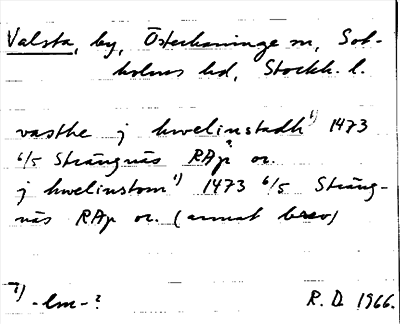 Valsta, by, Österhaninge sn, Sot-
holms hd, Stockh. l.
vasthe j hwelinstadh 1) 1473
6/5 Strängnäs RAp or.
j hwelinstom 1) 1473 6/5 Sträng-
näs RAp or. (annat brev)
1) -lm-?
R.D. 1966.